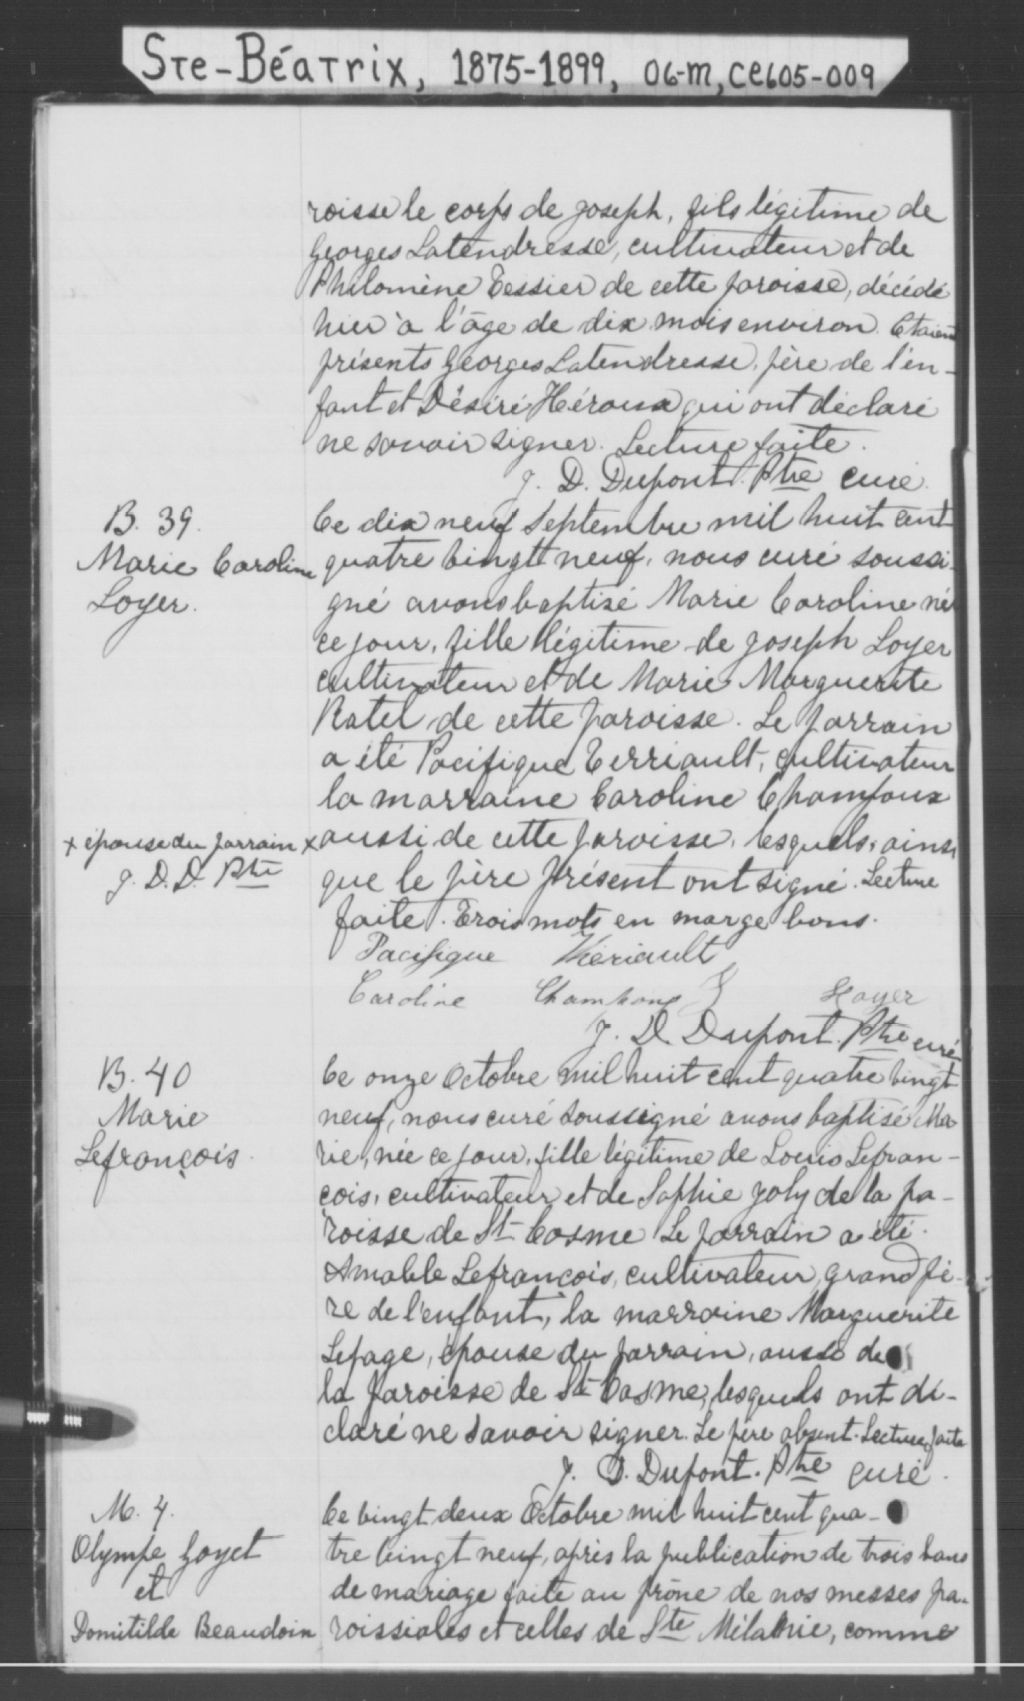 Ste-Béatrix, 1875-1899, 06-M, CE605-009
roisse le corps de Joseph, fils légitime de
Georges Latendresse, cultivateur et de
Philomène Tessier de cette paroisse, décédé
hier à l'âge de dix mois environ. Etaient
présents Georges Latendresse, père de l'en-
fant et Désiré Héroux qui ont déclaré
ne savoir signer. Lecture faite.
J. D. Dupont Ptre curé.
B. 39.
Marie Caroline
Loyer.
Ce dix neuf Septembre mil huit cent
quatre vingt neuf, nous curé soussi-
gné avons baptisé Marie Caroline née
ce jour, fille légitime de Joseph Loyer
cultivateur et de Marie Marguerite
Ratel de cette paroisse. Le parrain
a été Pacifique Terriault, cultivateur
la marraine Caroline Champoux
x épouse du parrain
J. D. D. Ptre
x aussi de cette paroisse, lesquels, ainsi
que le père présent ont signé. Lecture
faite. Trois mots en marge bons.
Pacifique Thériault
Caroline Champoux J Loyer
J. D. Dupont. Ptre curé
B. 40
Marie
Lefrançois.
Ce onze Octobre mil huit cent quatre vingt
neuf, nous curé soussigné avons baptisé Ma
rie, née ce jour, fille légitime de Louis Lefran-
çois, cultivateur et de Sophie Joly de la pa-
roisse de St Cosme Le parrain a été
Amable Lefrançois, cultivateur, grand pè-
re de l'enfant, la marraine Marguerite
Lepage, épouse du parrain, aussi de
la paroisse de St Cosme, lesquels ont dé-
claré ne savoir signer. Le père absent. Lecture faite
J. D. Dupont. Ptre curé.
M. 4.
Olympe Goyet
et
Domitilde Beaudoin
Ce vingt deux Octobre mil huit cent qua-
tre vingt neuf, après la publication de trois bans
de mariage faite au prône de nos messes pa-
roissiales et celles de Ste Mélanie, comme